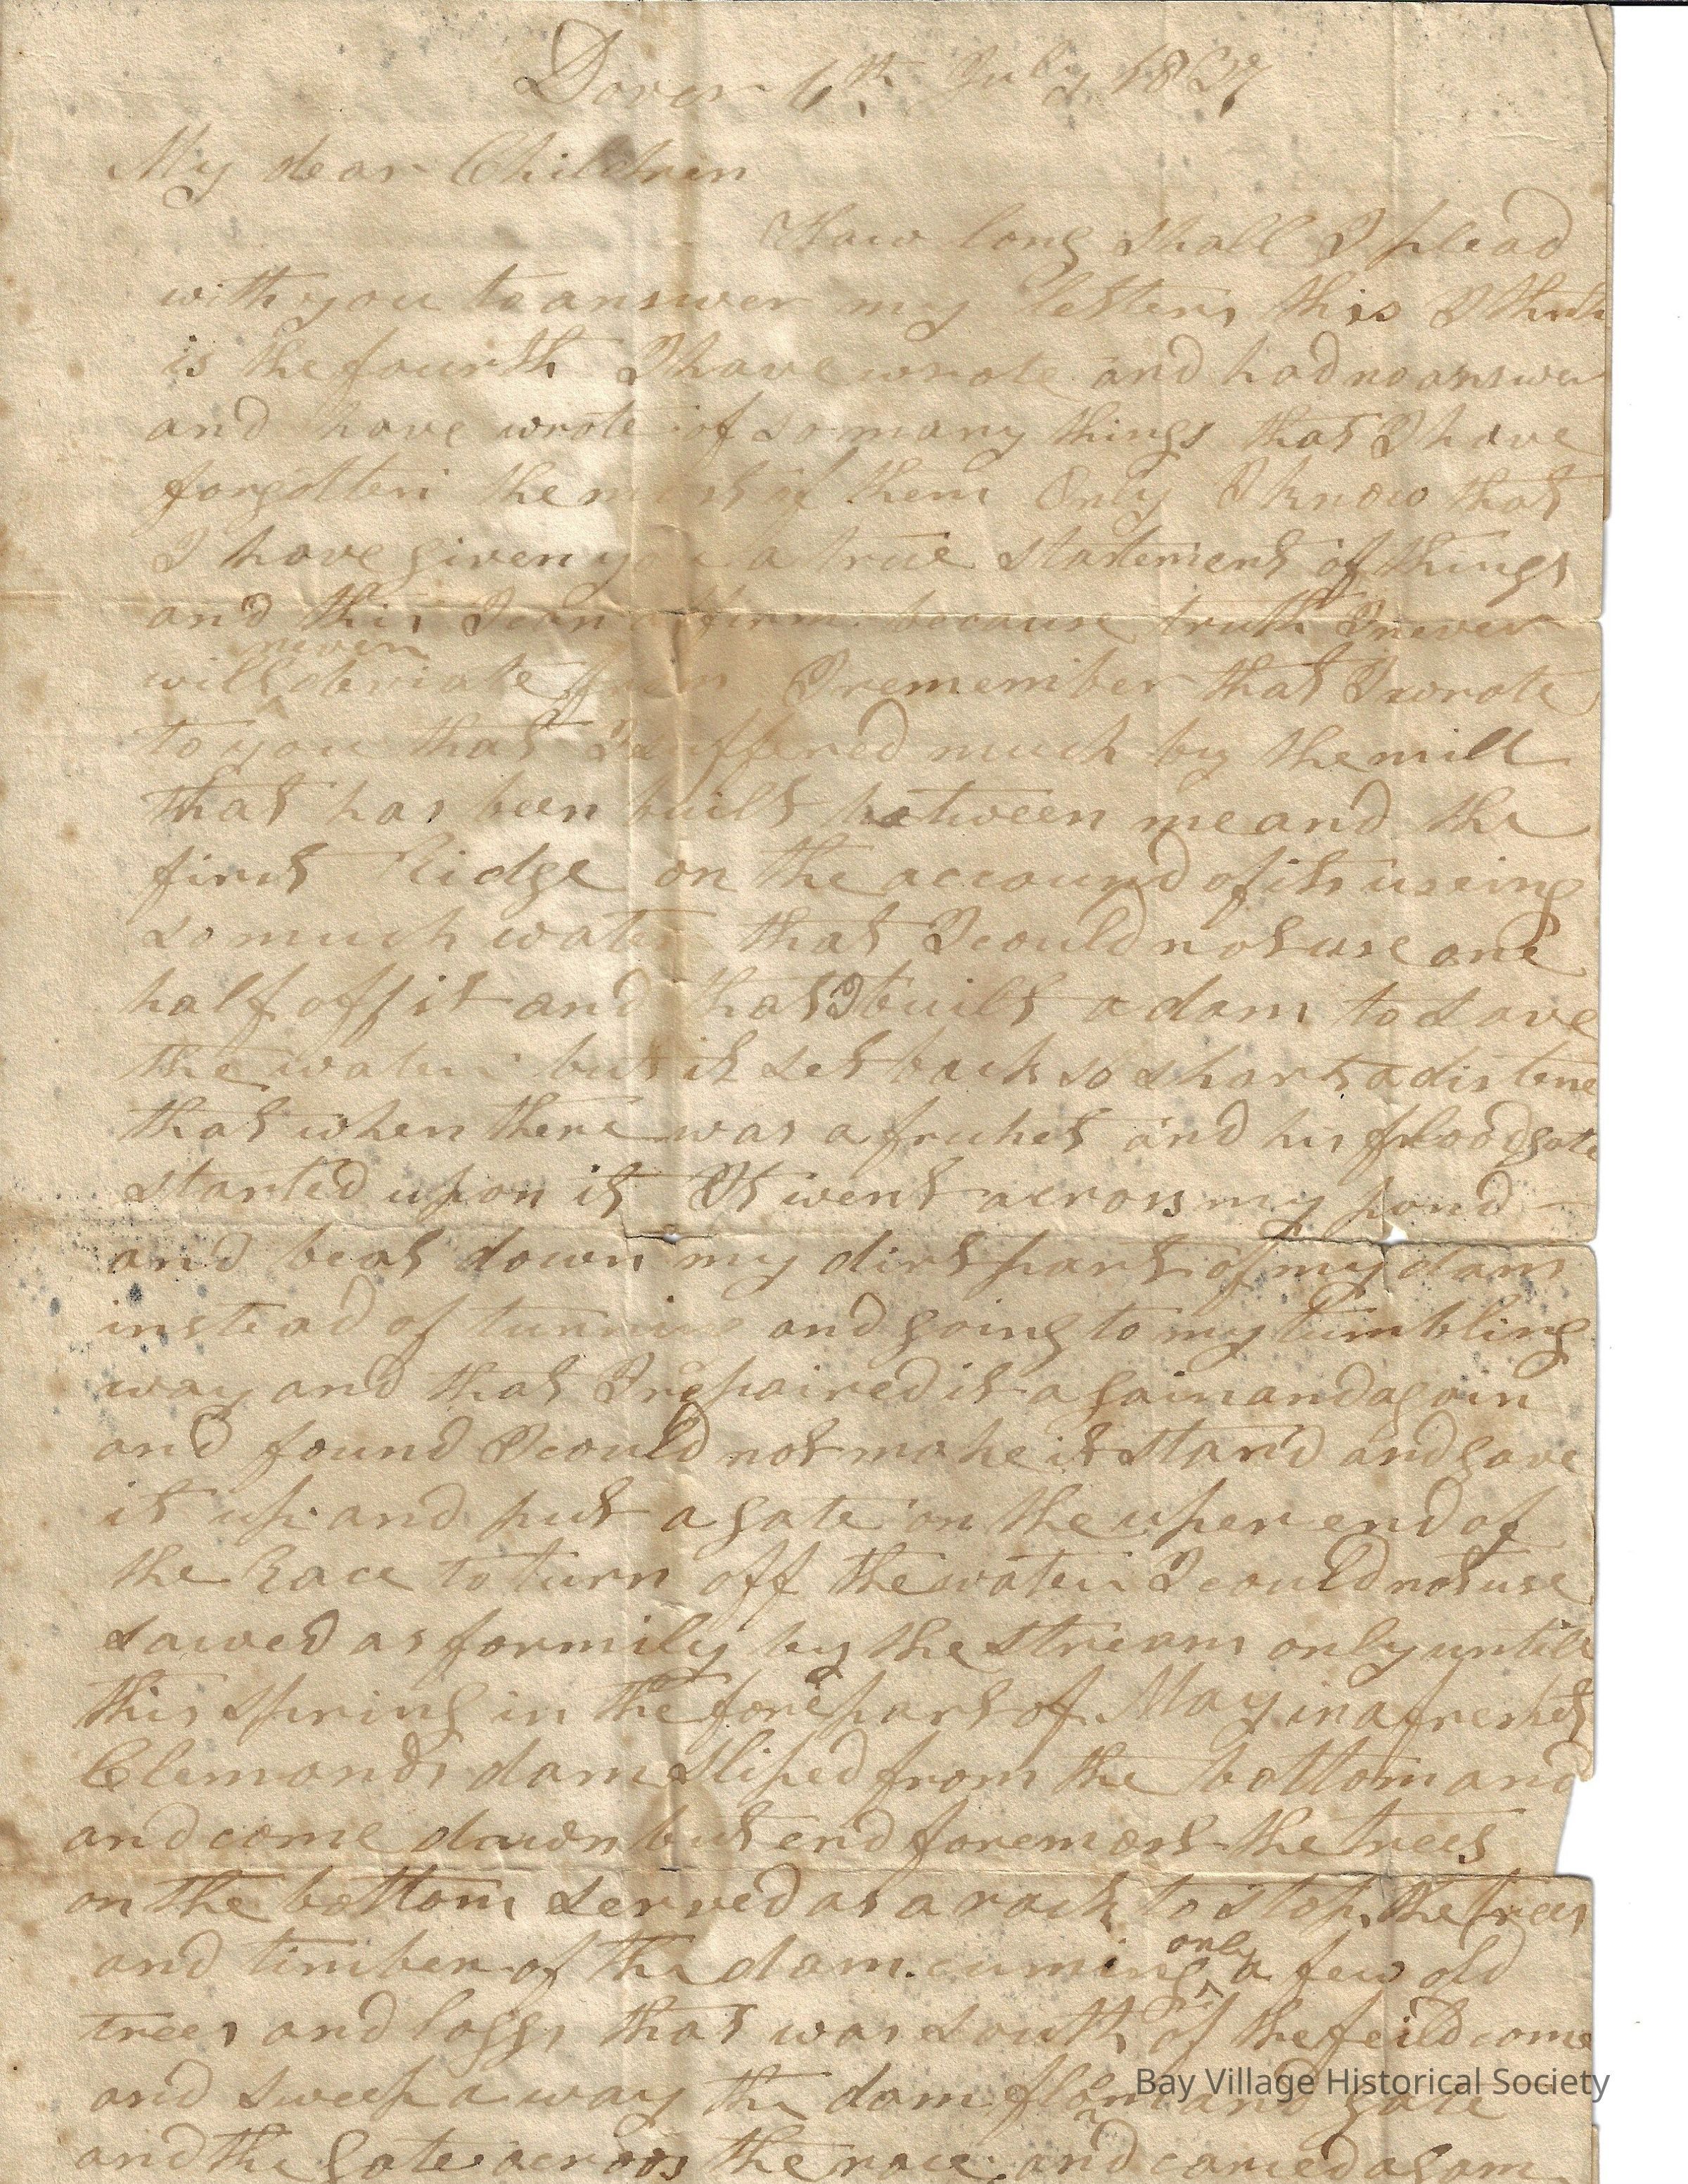 Dover 6th July 1827
My dear Children
How long shall I plead
with you to answer my letters this I think
is the fourth I have wrote and had no answer
and have wrote of so many things that I have
forgotten the most of them Only I know that
I have given you a true statement of things
and this I can affirm because truth I never
never
will deviate from I remember that I wrote
to you that I suffered much by the mill
that has been built between me and the
first Ridge on the account of its useing
so much water that I could not use one
half off it and that I built a dam to save
the water but it set back so short a distence
that when there was a fruhet and his floodgate
started upon it It went across my pond
and beat down my dirt part of my dam
instead of turning and going to my tumbling
way and that I repaired it again and again
and found I could not make it stand and gave
it up and put a gate on the uper end of
the Race to turn off the water I could not use
sawed as formily by the stream only untill
this spring in the fore part of May in a freshet
Clemonds dam sliped from the bottom and
and come down but end foremost the trees
on the bottom served as a rack to stop the trees
and timber of the dam cuming only a few old
trees and loggs that was south of the feild come
and sweep away the dam flom and gate
and the gate across the race and caried again
Bay Village Historical Society